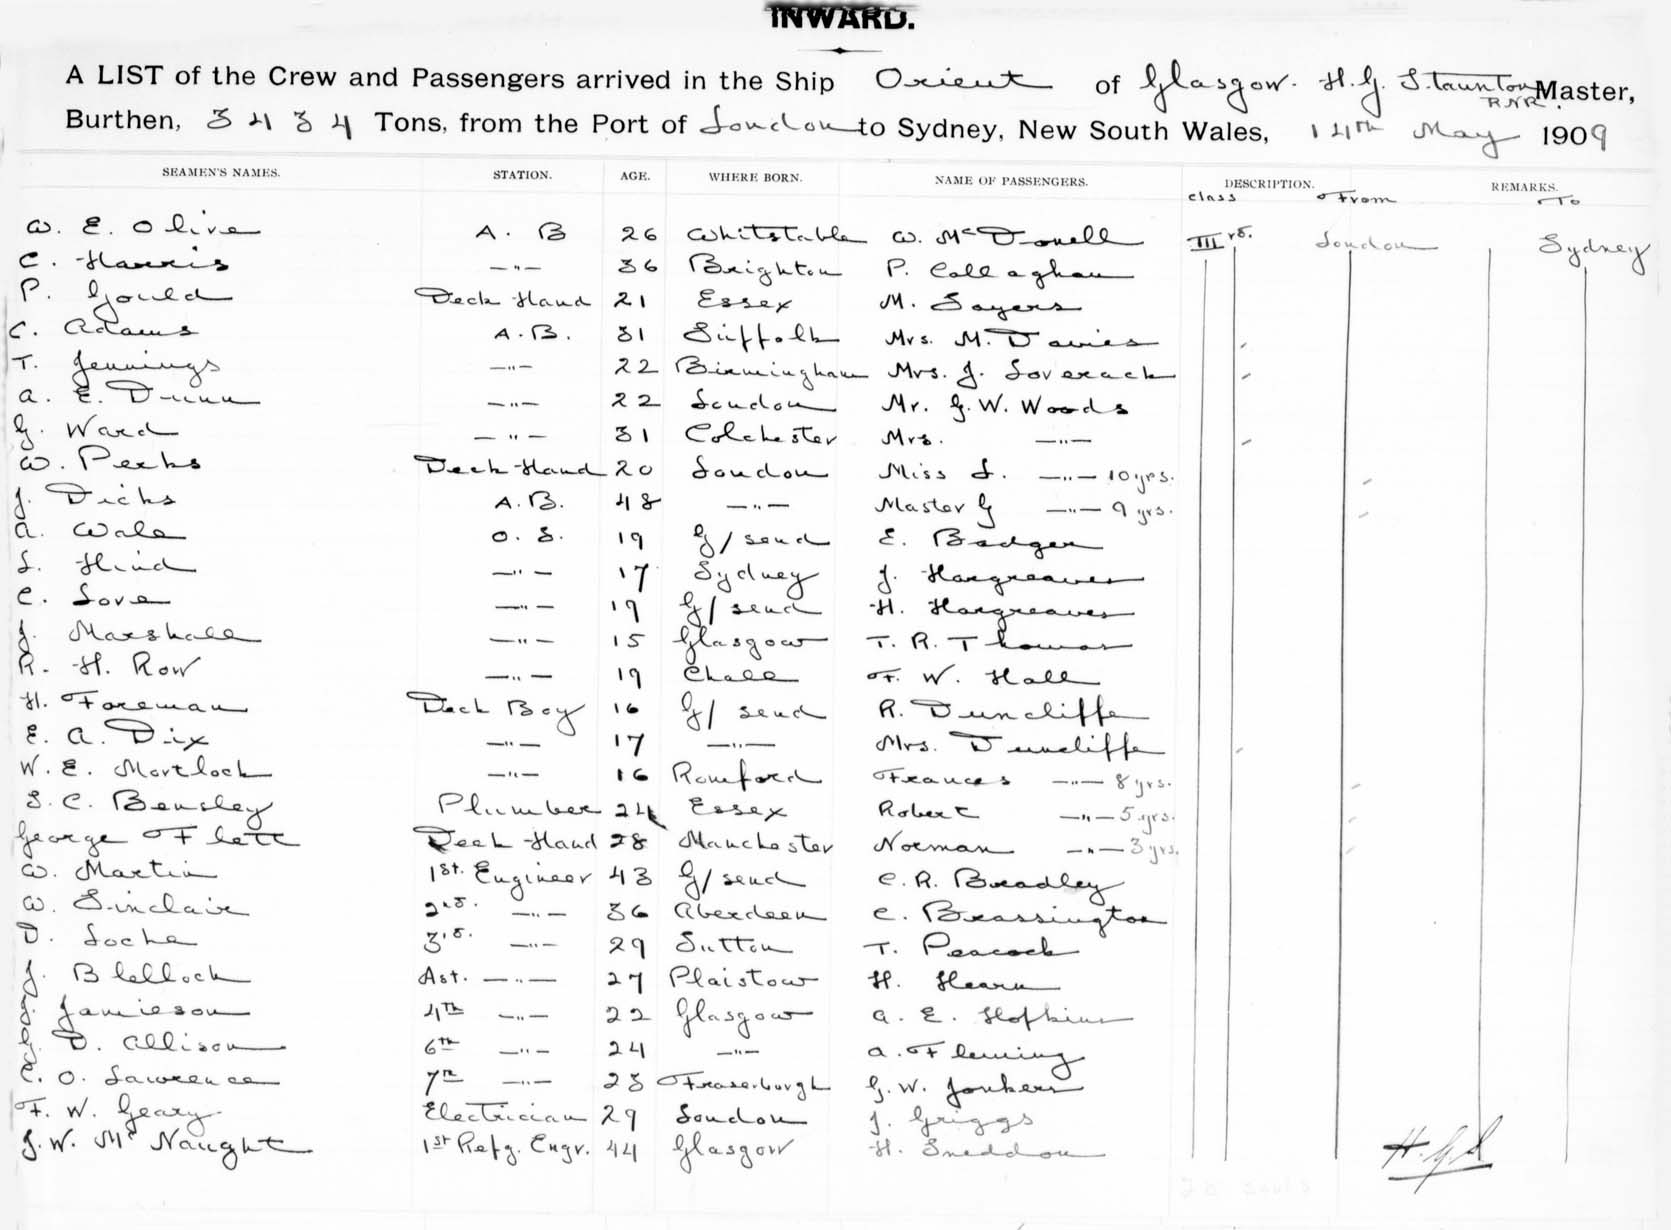 INWARD.
A LIST of the Crew and Passengers arrived in the Ship Orient of Glasgow. H. G. Staunton RNR. Master,
Burthen, 3434 Tons, from the Port of London to Sydney, New South Wales, 14th May 1909
SEAMEN'S NAMES. STATION. AGE. WHERE BORN. NAME OF PASSENGERS. DESCRIPTION. REMARKS.
class From To
W. E. Olive A. B 26 Whitstable W. McDonell IIIrd. London Sydney
C. Harris —"— 36 Brighton P. Callaghan
P. Gould Deck Hand 21 Essex M. Sayers
C. Adams A.B. 31 Suffolk Mrs. M. Davies
T. Jennings —"— 22 Birmingham Mrs. J. Loverack
A. E. Dunn —"— 22 London Mr. G. W. Woods
G. Ward —"— 31 Colchester Mrs. —"—
W. Perks Deck Hand 20 London Miss L. —"— 10 yrs.
J. Dicks A.B. 48 —"— Master G —"— 9 yrs.
A. Wale O. S. 19 G/send E. Badger
L. Hind —"— 17 Sydney J. Hargreaves
C. Love —"— 19 G/send H. Hargreaves
J. Marshall —"— 15 Glasgow T. R. Thomas
R. H. Row —"— 19 Chall F. W. Hall
H. Foreman Deck Boy 16 G/send R. Duncliffe
E. A. Dix —"— 17 —"— Mrs. Duncliffe
W. E. Mortlock —"— 16 Romford Frances —"— 8 yrs.
S. C. Bensley Plumber 24 Essex Robert —"— 5 yrs.
George Flett Deck Hand 28 Manchester Norman —"— 3 yrs.
W. Martin 1st. Engineer 43 G/send C. R. Bradley
W. Sinclair 2nd. —"— 36 Aberdeen C. Brassington
D. Locke 3rd. —"— 29 Sutton T. Peacock
J. Blellock Ast. —"— 27 Plaistow H. Hearn
Jamieson 4th —"— 22 Glasgow A. E. Hopkins
D. Allison 6th —"— 24 —"— A. Fleming
C. O. Lawrence 7th —"— 23 Fraserburgh G. W. Jonkers
F. W. Geary Electrician 29 London J. Griggs
J. W. McNaught 1st Refg. Engr. 44 Glasgow H. Sneddon H.G.S